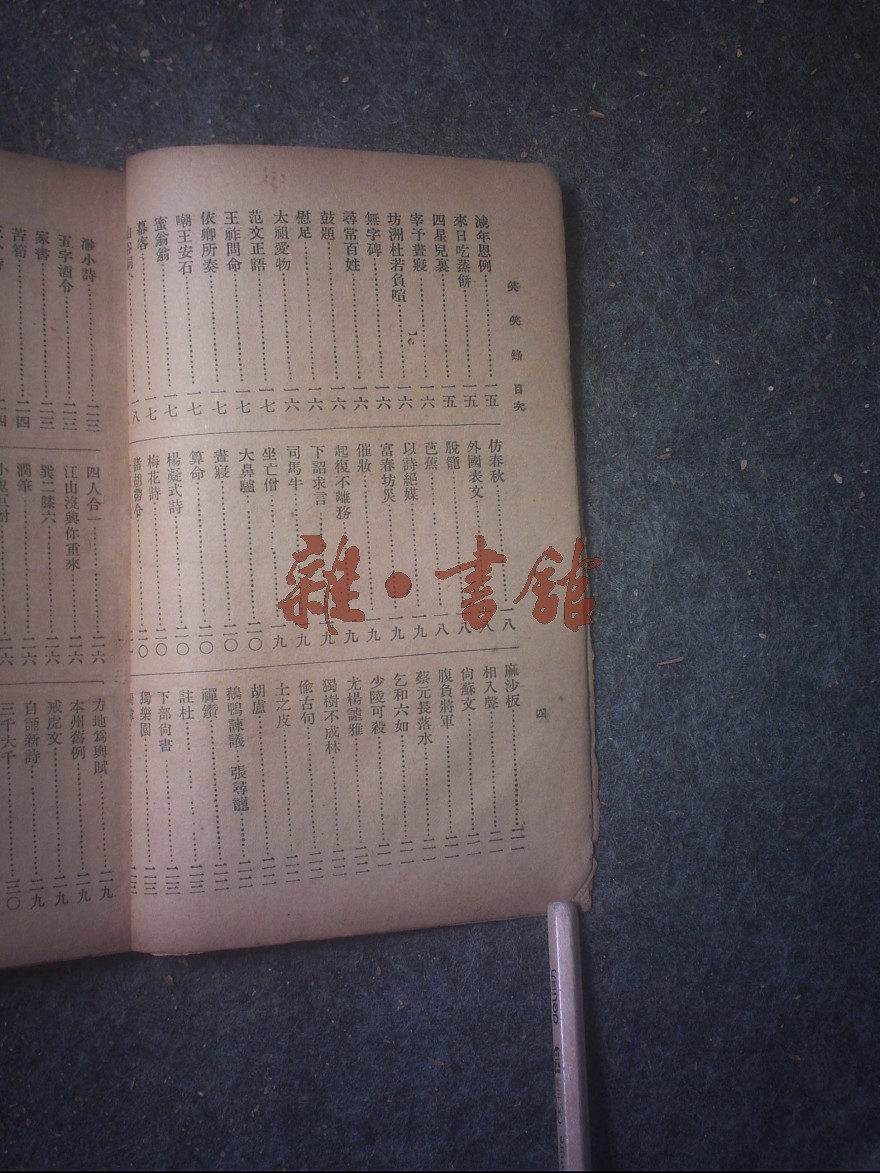 笑笑錄目次
四
減年恩例 一五
來日吃蒸餅 一五
四星兒裏 一五
宰予晝寢 一六
坊洲杜若負喧 一六
無字碑 一六
尋常百姓 一六
鼓題 一六
慰足 一六
太祖愛物 一六
范文正語 一七
王祚問命 一七
依卿所奏 一七
嘲王安石 一七
蜜翁翁 一七
慕客 一七
一八
仿春秋 一八
外國表文 一八
脫籠 一八
芭蕉 一九
以詩絕媒 一九
富春坊災 一九
催妝 一九
起復不離務 一九
下詔求言 一九
司馬牛 一九
坐亡僧 一九
大鼻驢 二〇
晝寢 二〇
算命 二〇
楊凝式詩 二〇
梅花詩 二〇
麻沙板 二一
相入聲 二一
尙蘇文 二一
腹負將軍 二一
蔡元長落水 二一
乞和六如 二一
少陵可殺 二二
尤楊謔雅 二二
獨樹不成林 二二
偷古句 二二
土之皮 二二
胡盧 二二
鵝鴨諫議 張尋龍 二二
禪鑽 二二
註杜 二三
下部尙書 二三
獨樂園 二三
小詩 二三
五字濕令 二三
家書 二三
苦筍 二四
二四
四人合一 二六
江山沒與你重來 二六
巽二滕六 二六
潤筆 二六
二六
方地爲輿賦 二九
本州舊例 二九
戒虎文 二九
自顧新詩 二九
三千大千 三〇
雜·書館